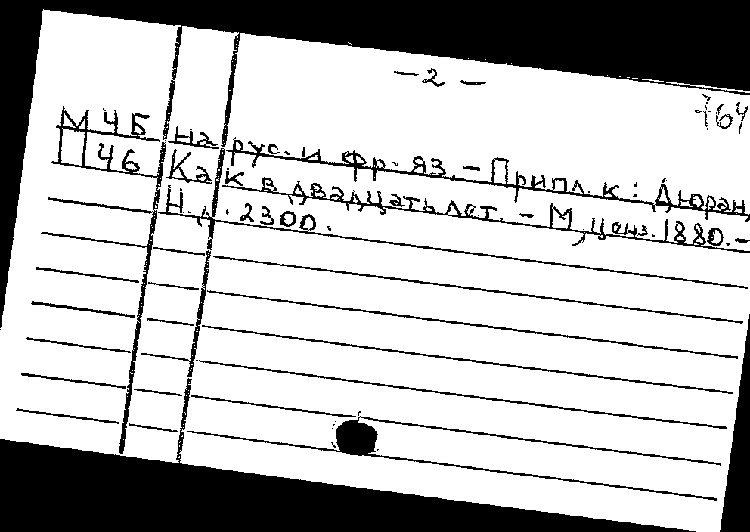 — 2 —
764
М 45 на рус. и фр. яз. – Припл. к: Дюран,
П 46 Как в двадцать лет. – М, ценз. 1880. –
Н. д. 2300.